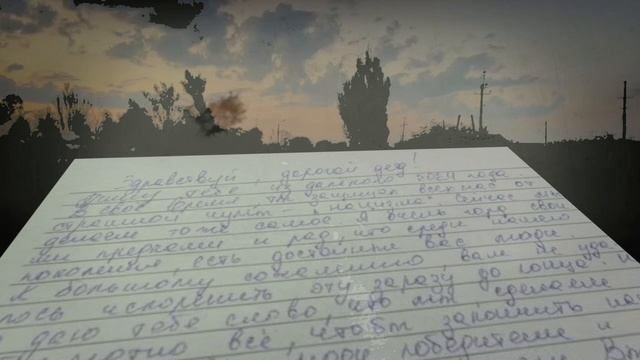 Здравствуй, дорогой дед!
Пишу тебе из далекого 2024 года.
В своё время, ты защищал всех нас от
страшной чумы - "нацизма". Сейчас мы
делаем то же самое. Я очень горд свои
ми предками и рад, что среди нашего
поколения, есть достойные вас люди.
К большому сожалению, вам не уда
лось искоренить эту заразу до конца
даю тебе слово, что мы сделаем
всё, чтобы запомнить
победители и